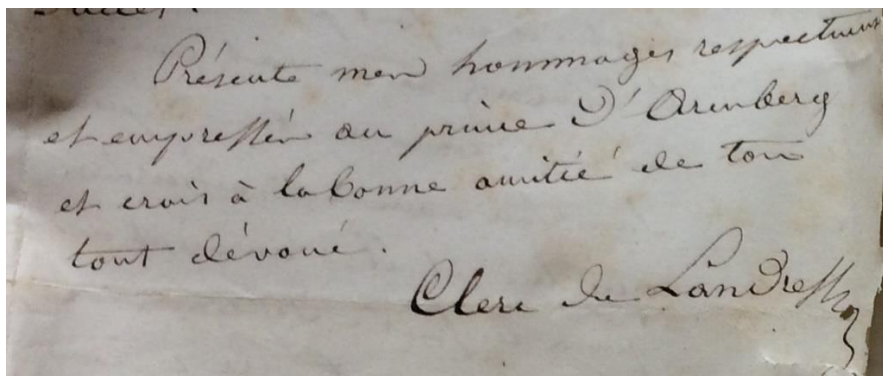 Présente mes hommages respectueux
et empressés au prince D'Arenberg
et crois à la bonne amitié de ton
tout dévoué.
Clerc de Landresse